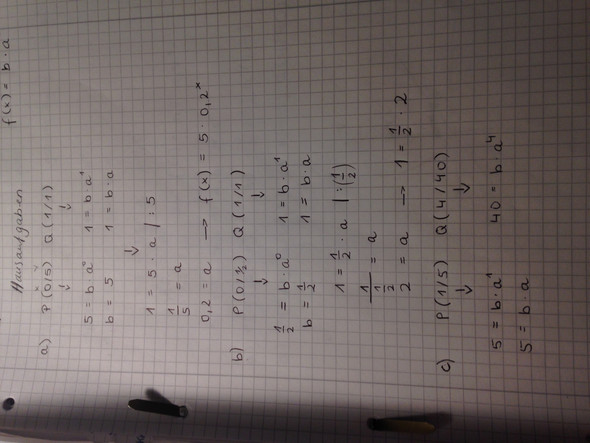 f(x) = b · a
Hausaufgaben
a) P(0/5) Q(1/1)
x y
↓ ↓
5 = b · a⁰ 1 = b · a¹
b = 5 1 = b · a
↓
1 = 5 · a | : 5
1/5 = a
0,2 = a → f(x) = 5 · 0,2ˣ
b) P(0/½) Q(1/1)
↓ ↓
1/2 = b · a⁰ 1 = b · a¹
b = 1/2 1 = b · a
1 = 1/2 · a | : (1/2)
1/(1/2) = a
2 = a → 1 = 1/2 · 2
c) P(1/5) Q(4/40)
↓ ↓
5 = b · a¹ 40 = b · a⁴
5 = b · a